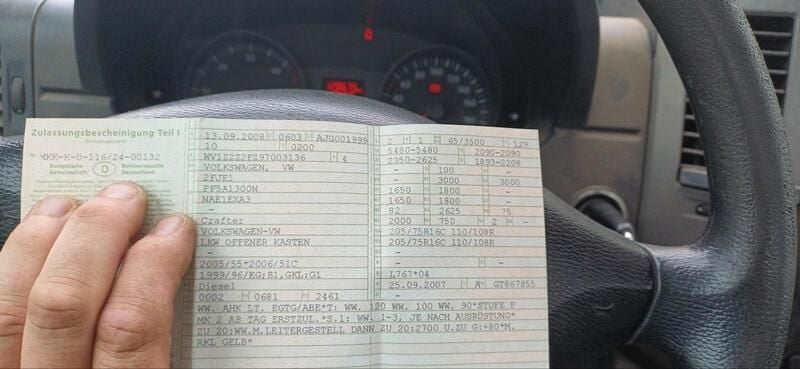 Zulassungsbescheinigung Teil I
MKK-K-0-116/24-00132
Europäische Gemeinschaft
D
Bundesrepublik Deutschland
13.09.2008 0603 AJG001999
10 0200
WV1ZZZ2FZ97003136 4
VOLKSWAGEN, VW
2FJE1
PF5A1300N
NAE1EXA3
-
Crafter
VOLKSWAGEN-VW
LKW OFFENER KASTEN
-
2005/55*2006/51C
1999/96/EG;B1,GKL:G1
Diesel
0002 0681 2461
2 1 65/3500 129
5480-5480 2090-2090
2350-2625 1893-2208
- 100 -
- 3000 3000
1650 1800 -
1650 1800 -
82 2625 75
2000 750 2 -
205/75R16C 110/108R
205/75R16C 110/108R
-
-
L767*04
25.09.2007 A GT867855
-
WW. AHK LT. EGTG/ABE*T: WW. 120 WW. 100 WW. 90*STUFE P
MK.2 AB TAG ERSTZUL.*S.1: WW. 1-3, JE NACH AUSRÜSTUNG*
ZU 20:WW.M.LEITERGESTELL DANN ZU 20:2700 U.ZU G:+80*M.
RKL GELB*